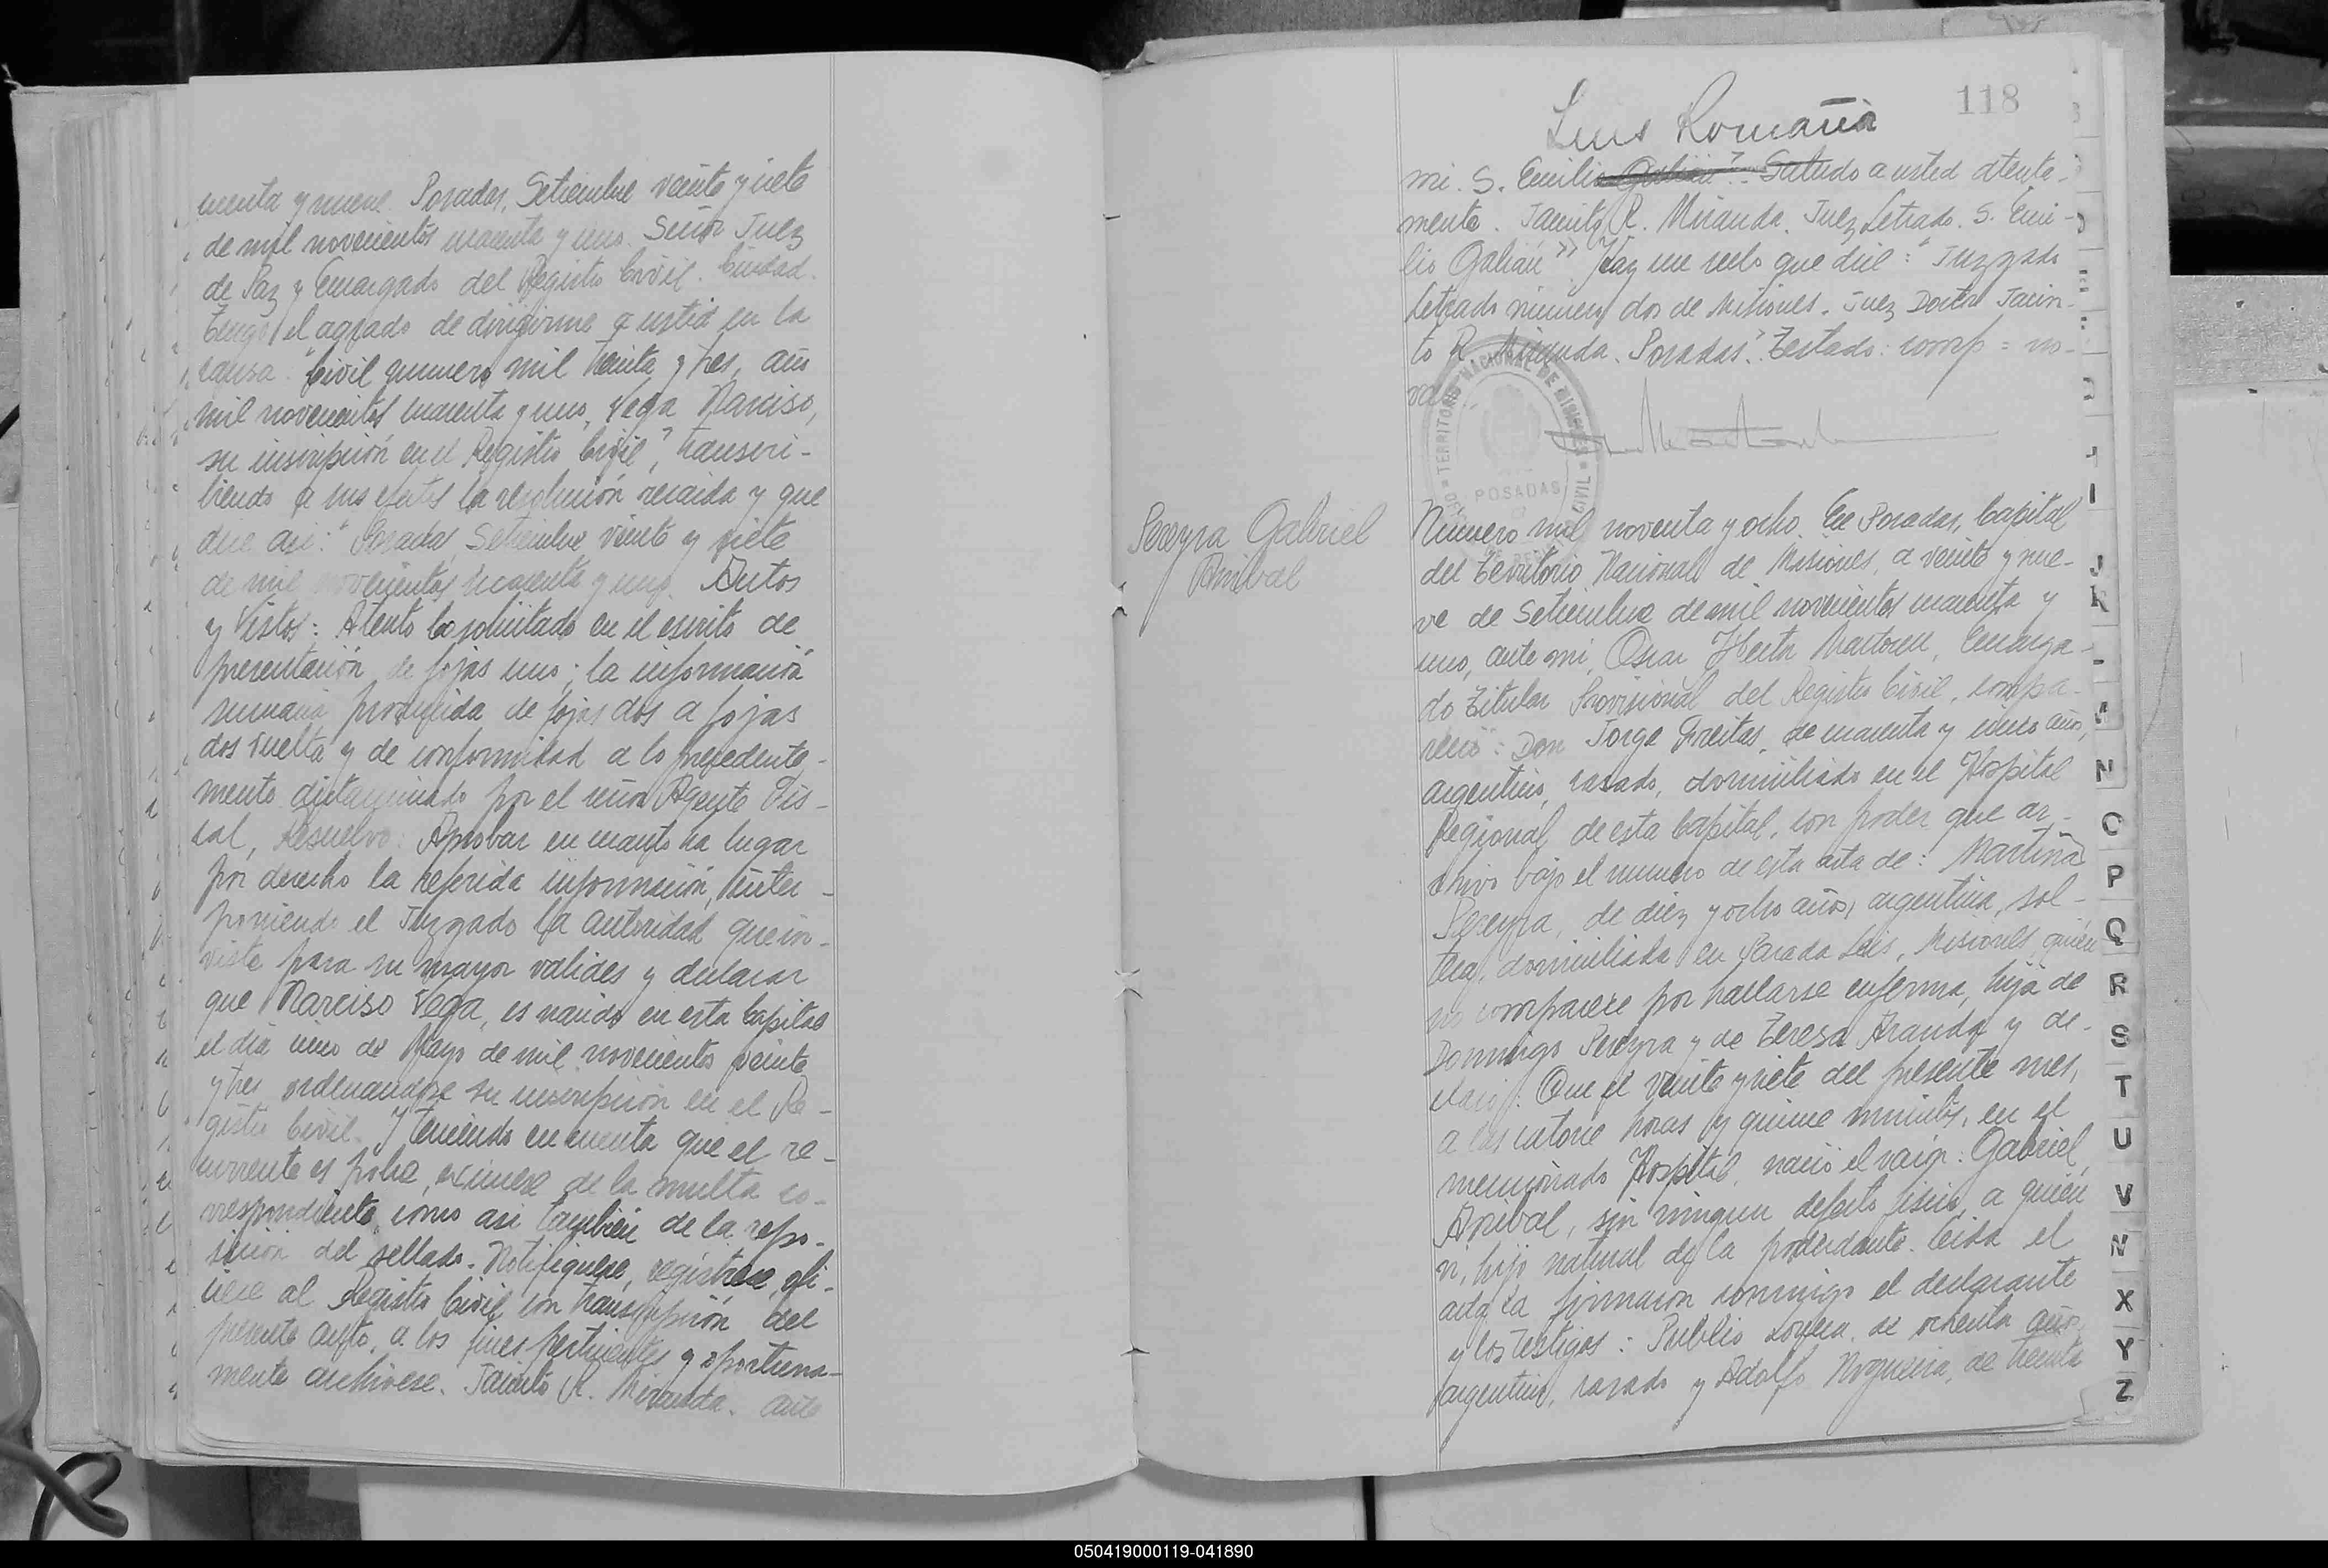 cuenta y nueve. Posadas, Setiembre veinte y siete
de mil novecientos cuarenta y uno. Señor Juez
de Paz y Encargado del Registro Civil. Ciudad.
Tengo el agrado de dirigirme a usted en la
causa "Civil numero mil treinta y tres, año
mil novecientos cuarenta y uno, Vega Narciso,
su inscripción en el Registro Civil", transcri-
biendo a sus efectos la resolución recaida y que
dice asi: "Posadas, Setiembre veinte y siete
de mil novecientos cuarenta y uno. Autos
y Vistos: Atento lo solicitado en el escrito de
presentación de fojas uno; la información
sumaria producida de fojas dos a fojas
dos vuelta y de conformidad a lo precedente-
mente dictaminado por el señor Agente Fis-
cal, Resuelvo: Aprobar en cuanto ha lugar
por derecho la referida información, inter-
poniendo el Juzgado la autoridad que in-
viste para su mayor valides y declarar
que Narciso Vega, es nacido en esta Capital
el día uno de Mayo de mil novecientos veinte
y tres ordenandose su inscripción en el Re-
gistro Civil. Y teniendo en cuenta que el re-
currente es pobre, exímese de la multa co-
rrespondiente, como asi también de la repo-
sición del sellado. Notifiquese, regístrese, ofi-
ciese al Registro Civil con transcripción del
presente auto, a los fines pertinentes y oportuna-
mente archivese. Jacinto R. Miranda. Ante
118
Luis Romaña
mi. S. Emilio Galián". Saludo a usted atenta-
mente. Jacinto R. Miranda. Juez Letrado. S. Emi-
lio Galián". Hay un sello que dice: "Juzgado
Letrado número dos de Misiones. Juez Doctor Jacin-
to R. Miranda. Posadas". Testado: comp = no-
vale.
TERRITORIO NACIONAL DE MISIONES
CIVIL
POSADAS
Pereyra Gabriel
Anibal
Numero mil noventa y ocho. En Posadas, Capital
del Territorio Nacional de Misiones, a veinte y nue-
ve de Setiembre de mil novecientos cuarenta y
uno, ante mi, Oscar Hector Martorell, Encarga-
do Titular Provisional del Registro Civil, compa-
reció: Don Jorge Freitas, de cuarenta y cinco años,
argentino, casado, domiciliado en el Hospital
Regional de esta Capital, con poder que ar-
chivo bajo el numero de esta acta de: Martina
Pereyra, de diez y ocho años, argentina, sol-
tera, domiciliada en Parada Leis, Misiones, quien
no comparece por hallarse enferma, hija de
Domingo Pereyra y de Teresa Aranda y de-
claró: Que el veinte y siete del presente mes,
a las catorce horas y quince minutos, en el
mencionado Hospital, nació el varón: Gabriel
Anibal, sin ningun defecto fisico, a quien
vi, hijo natural de la poderdante. Leida el
acta la firmaron conmigo el declarante
y los testigos: Publio de ochenta años,
argentino, casado y Adolfo Nogueira, de treinta
J
K
N
O
P
Q
R
S
T
U
V
X
Y
Z
050419000119-041890